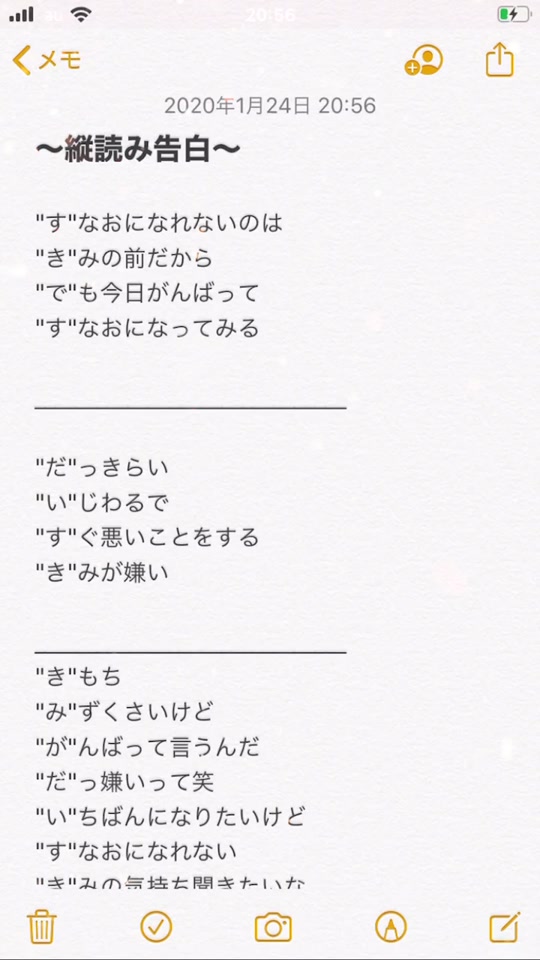 au
20:56
メモ
2020年1月24日 20:56
〜縦読み告白〜
"す"なおになれないのは
"き"みの前だから
"で"も今日がんばって
"す"なおになってみる
"だ"っきらい
"い"じわるで
"す"ぐ悪いことをする
"き"みが嫌い
"き"もち
"み"ずくさいけど
"が"んばって言うんだ
"だ"っ嫌いって笑
"い"ちばんになりたいけど
"す"なおになれない
"き"みの気持ち聞きたいな